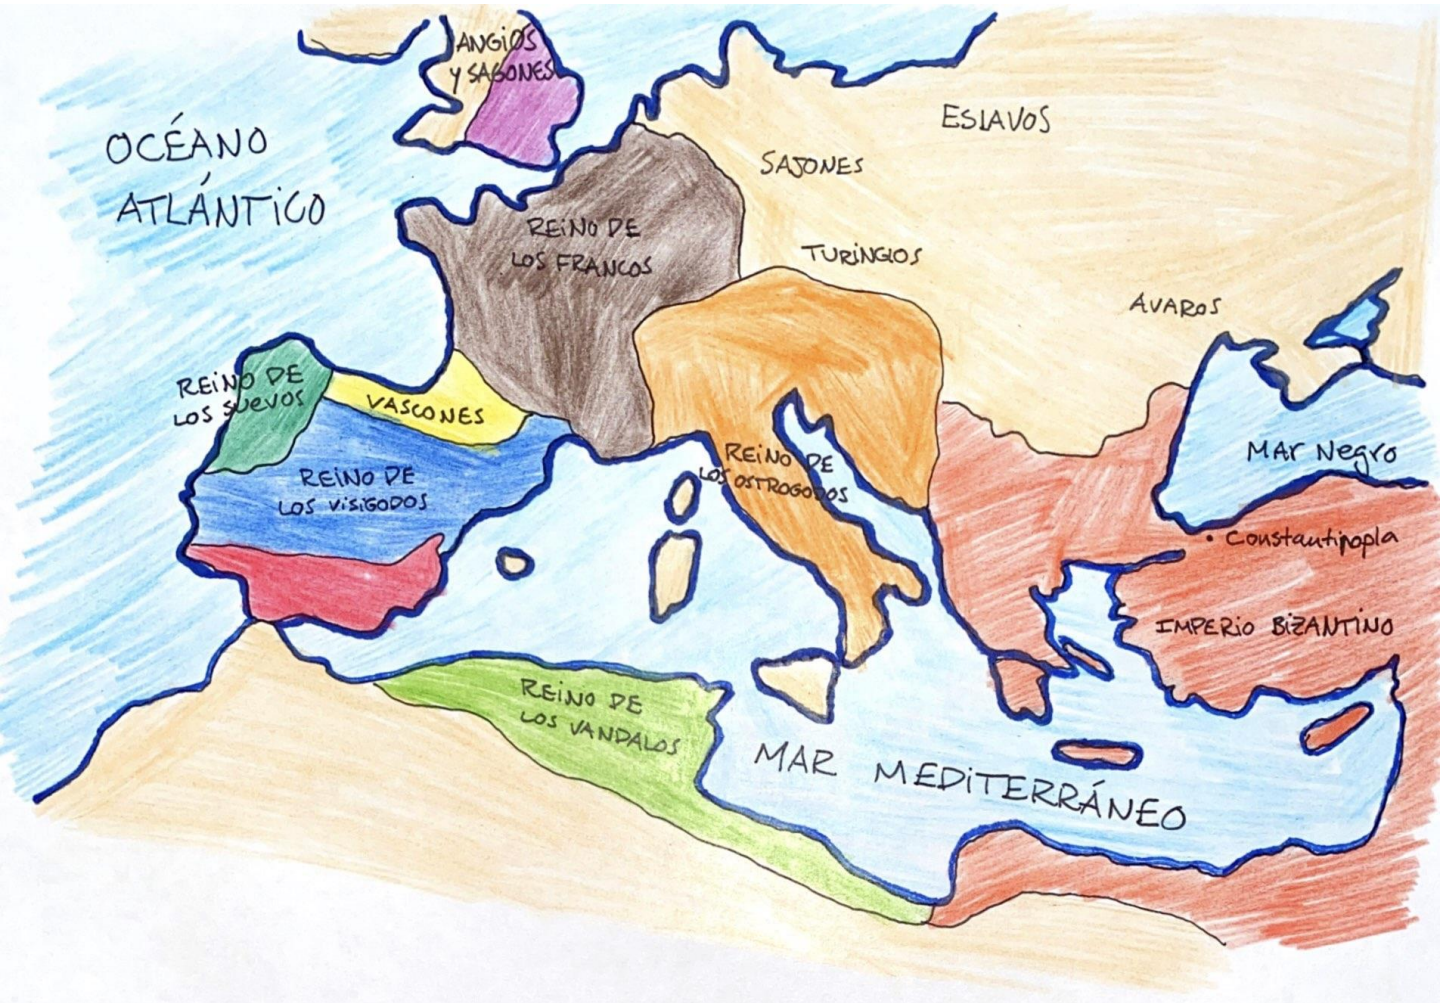 ANGIOS
Y SAGONES
OCÉANO
ATLÁNTICO
ESLAVOS
SAJONES
REINO DE
LOS FRANCOS
TURINGIOS
AVAROS
REINO DE
LOS SUEVOS
VASCONES
REINO DE
LOS VISIGODOS
REINO DE
LOS OSTROGODOS
MAR Negro
Constantinopla
IMPERIO BIZANTINO
REINO DE
LOS VANDALOS
MAR MEDITERRÁNEO